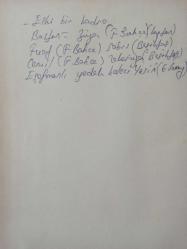 - Eski bir kadro
Baştan = Ziya (F. Bahçe) kaptan
Fuad (F. Bahçe) Sabri (Beşiktaş)
Cemil (F. Bahçe) (Beşiktaş)
Eşofmanlı yedek kaleci Yasin (G. Saray)